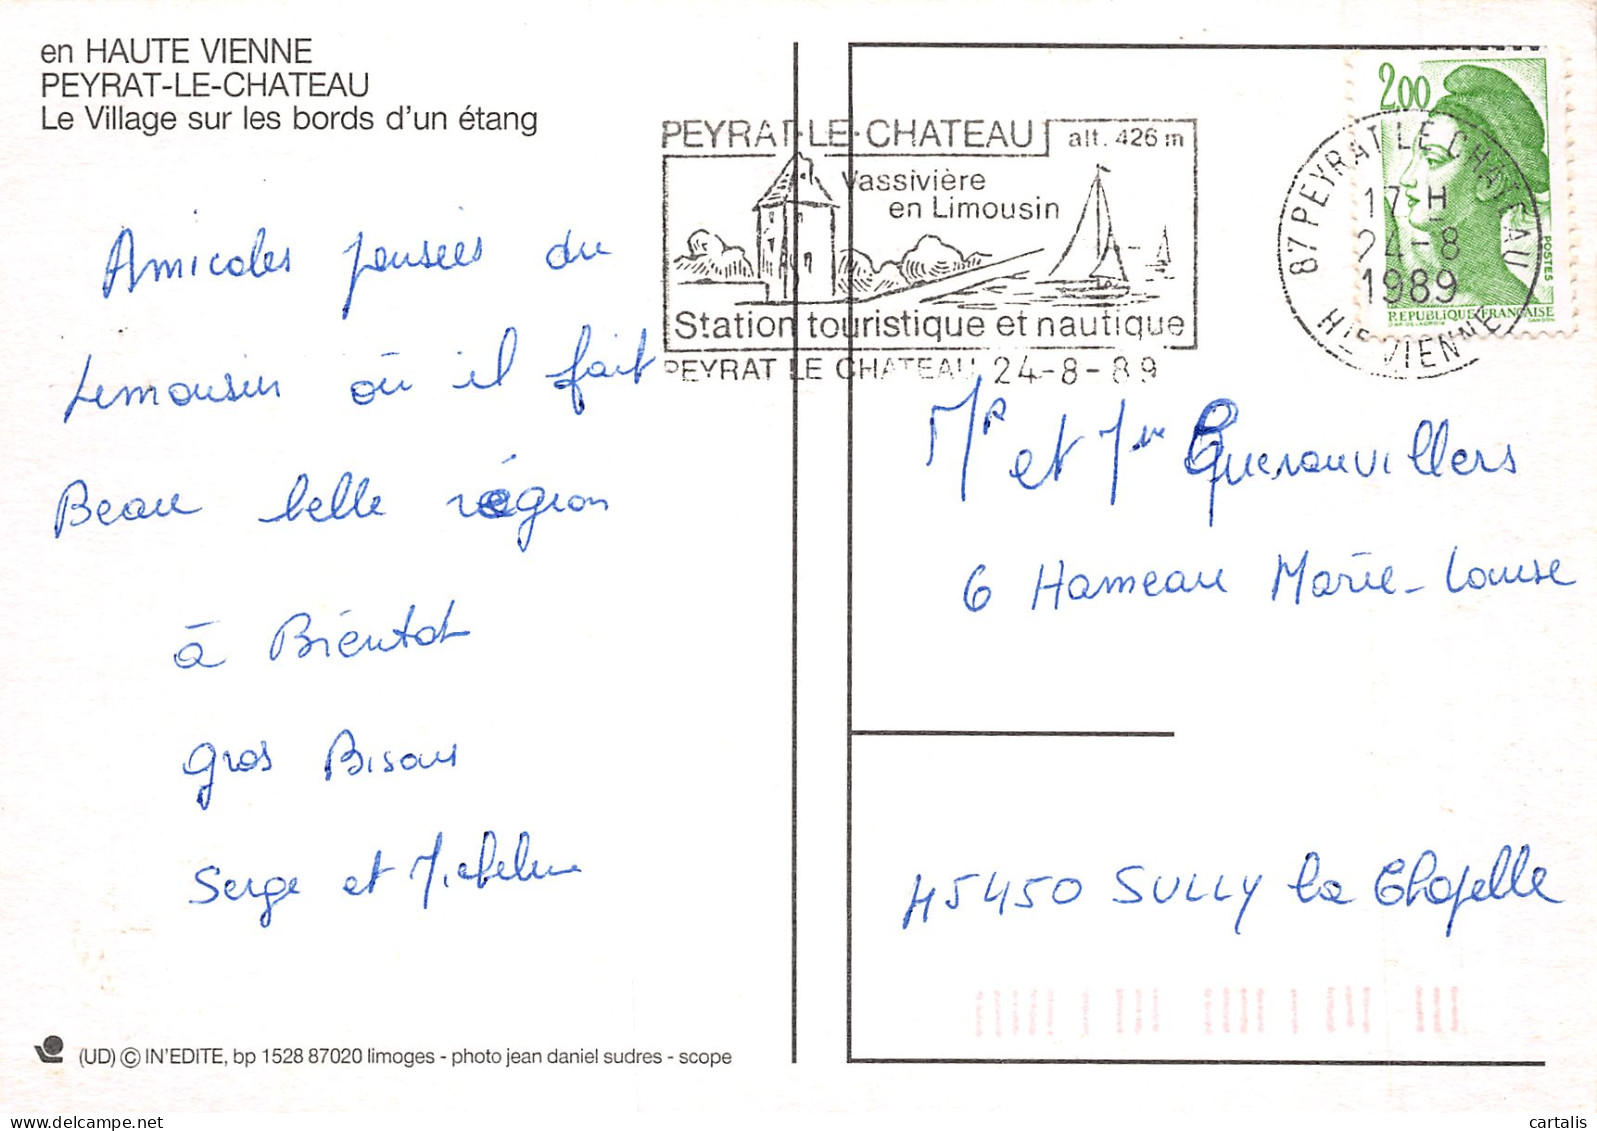 en HAUTE VIENNE
PEYRAT-LE-CHATEAU
Le Village sur les bords d'un étang
Amicales pensées du
Limousin où il fait
Beau belle région
à Bientot
gros Bisous
Serge et Micheline
(UD) © IN'EDITE, bp 1528 87020 limoges - photo jean daniel sudres - scope
PEYRAT-LE-CHATEAU alt. 426 m
Vassivière
en Limousin
Station touristique et nautique
PEYRAT LE CHATEAU 24-8-89
87 PEYRAT LE CHATEAU
17 H
24-8
1989
HTE VIENNE
2,00
POSTES
REPUBLIQUE FRANÇAISE
Mr et Me Gueranvillers
6 Hameau Marie-Louise
45450 SULLY la Chapelle
cartalis